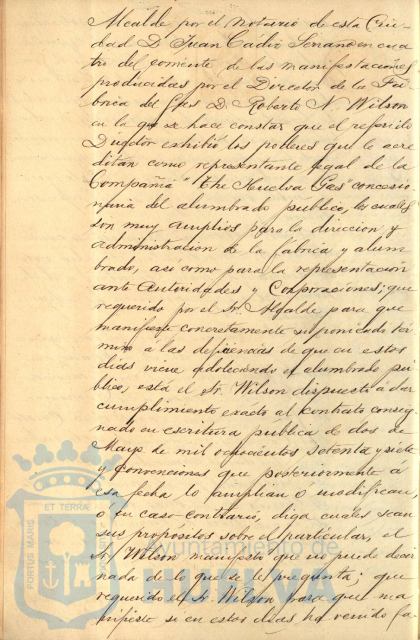 Alcalde por el Notario de esta Ciu-
dad D. Juan Cádiz Serrano en cua-
tro del corriente de las manifestaciones
producidas por el Director de la Fá-
brica del Gas D. Roberto N. Wilson
en la que se hace constar que el referido
Director exhibió los poderes que le acre-
ditan como representante legal de la
Compañía "The Huelva Gas" concesio-
naria del alumbrado público, los cuales
son muy amplios para la direccion y
administracion de la fábrica y alum-
brado, asi como para la representación
ante Autoridades y Corporaciones; que
requerido por el Sr. Alcalde para que
manifieste concretamente si poniendo tér-
mino a las deficiencias de que en estos
dias viene adoleciendo el alumbrado pú-
blico, está el Sr. Wilson dispuesto á dar
cumplimiento exácto al contrato consig-
nado en escritura pública de dos de
Mayo de mil ochocientos setenta y siete
y convenciones que posteriormente a
esa fecha lo amplian ó modifican
o en caso contrario, diga cuales sean
sus propósitos sobre el particular, el
Sr. Wilson manifestó que no puede decir
nada de lo que se le pregunta; que
requerido el Sr. Wilson para que ma-
nifieste si en estos dias ha venido fa
PORTUS MARIS ET TERRÆ
Ayuntamiento de
HUELVA